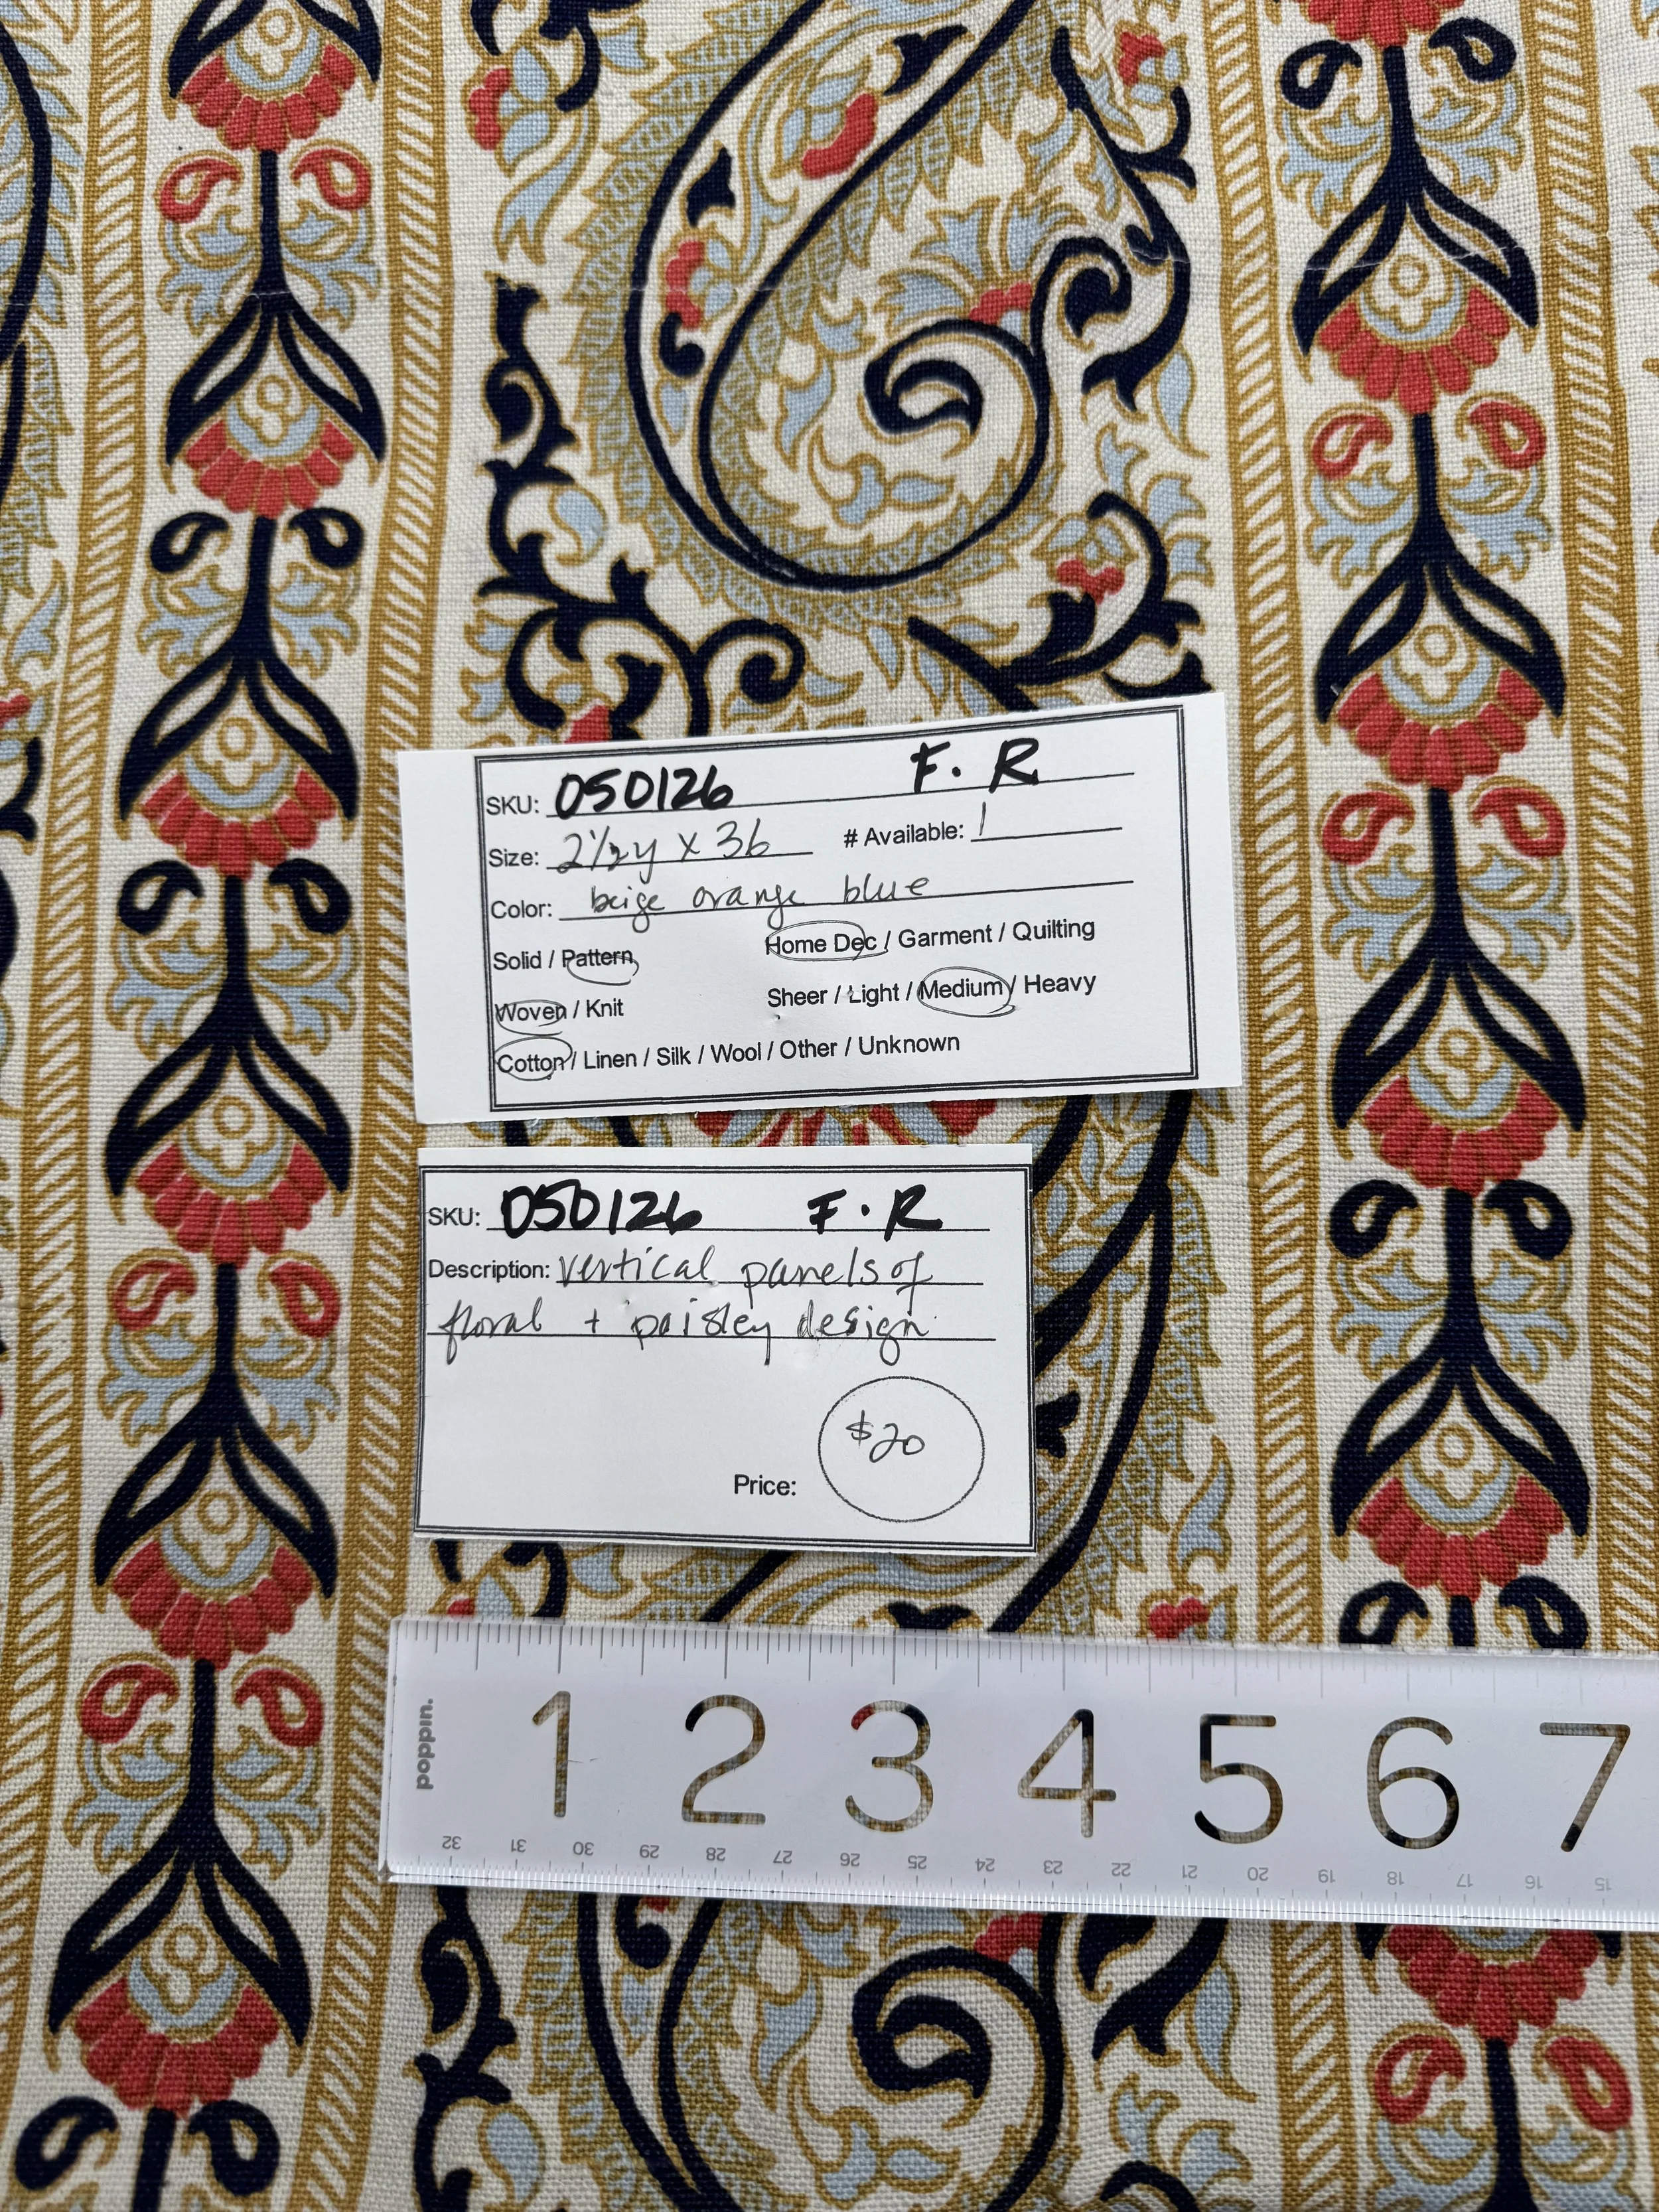 SKU: 050126 F. R
Size: 2 1/2 y x 36 # Available: 1
Color: beige orange blue
Solid / Pattern Home Dec / Garment / Quilting
Woven / Knit Sheer / Light / Medium / Heavy
Cotton / Linen / Silk / Wool / Other / Unknown
SKU: 050126 F. R
Description: vertical panels of
floral + paisley design
Price: $20
poppin.
1 2 3 4 5 6 7
32 31 30 29 28 27 26 25 24 23 22 21 20 19 18 17 16 15